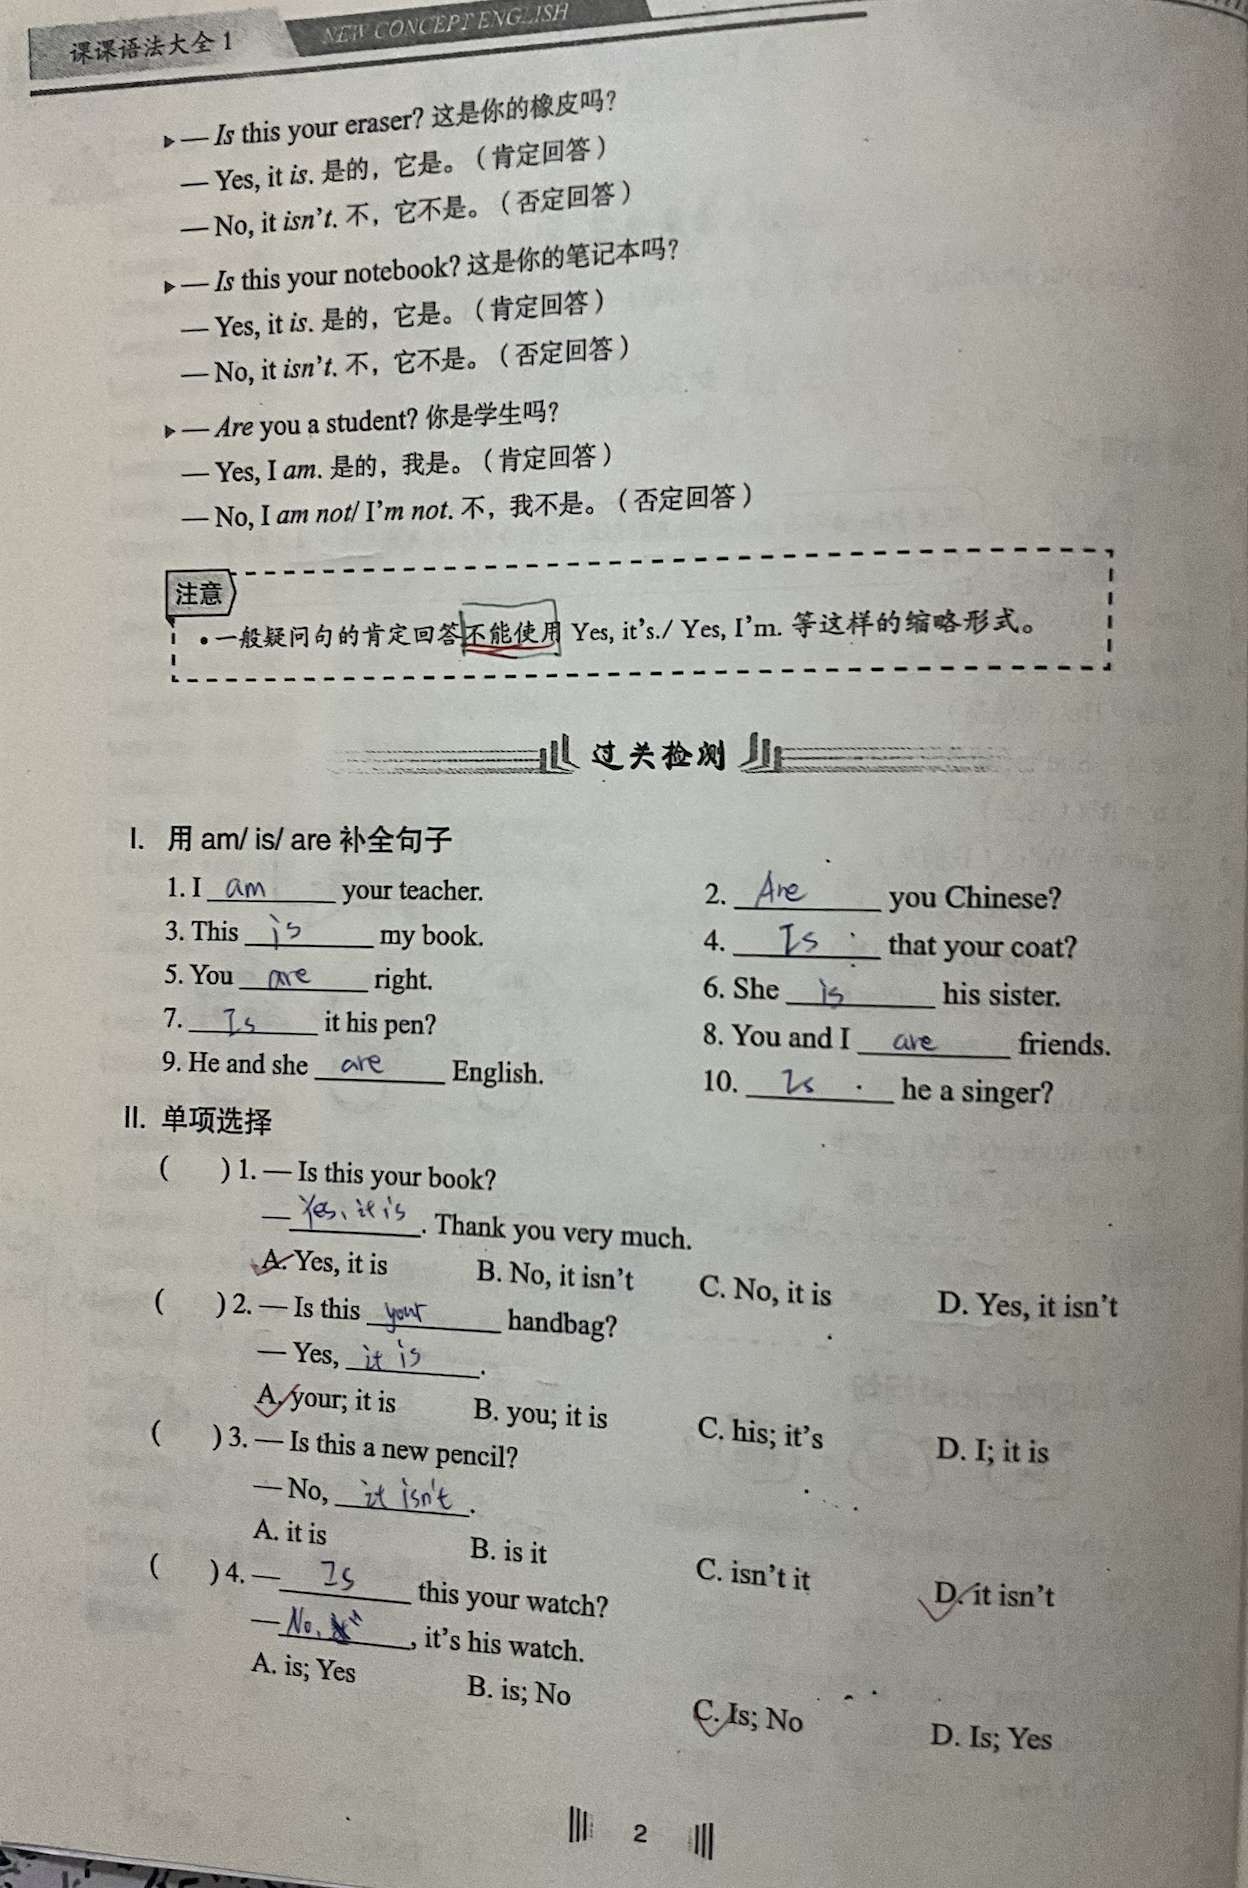 课课语法大全 1
NEW CONCEPT ENGLISH
— Is this your eraser? 这是你的橡皮吗?
— Yes, it is. 是的，它是。（肯定回答）
— No, it isn't. 不，它不是。（否定回答）
— Is this your notebook? 这是你的笔记本吗?
— Yes, it is. 是的，它是。（肯定回答）
— No, it isn't. 不，它不是。（否定回答）
— Are you a student? 你是学生吗?
— Yes, I am. 是的，我是。（肯定回答）
— No, I am not/ I'm not. 不，我不是。（否定回答）
注意
• 一般疑问句的肯定回答不能使用 Yes, it's./ Yes, I'm. 等这样的缩略形式。
过关检测
I. 用 am/ is/ are 补全句子
1. I am your teacher.
2. Are you Chinese?
3. This is my book.
4. Is that your coat?
5. You are right.
6. She is his sister.
7. Is it his pen?
8. You and I are friends.
9. He and she are English.
10. Is he a singer?
II. 单项选择
( ) 1. — Is this your book?
— Yes, it is. Thank you very much.
A. Yes, it is B. No, it isn't C. No, it is D. Yes, it isn't
( ) 2. — Is this your handbag?
— Yes, it is.
A. your; it is B. you; it is C. his; it's D. I; it is
( ) 3. — Is this a new pencil?
— No, it isn't.
A. it is B. is it C. isn't it D. it isn't
( ) 4. — Is this your watch?
— No, , it's his watch.
A. is; Yes B. is; No C. Is; No D. Is; Yes
2